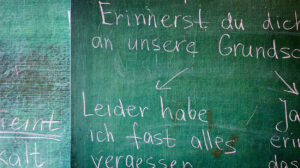 Erinnerst du dich
an unsere Grundsc
Leider habe
ich fast alles
vergessen
Ja
eri
das
eint
kalt